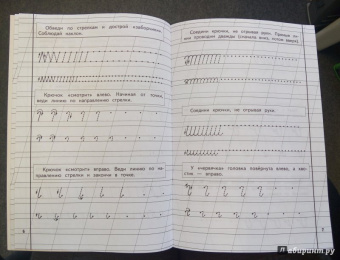 Обведи по стрелкам и дострой «заборчики».
Соблюдай наклон.
Крючок «смотрит» влево. Начиная от точки,
веди линию по направлению стрелки.
Крючок «смотрит» вправо. Веди линию по на-
правлению стрелки и закончи в точке.
6
Соедини крючки, не отрывая руки.
Соедини крючки, не отрывая руки
У «червячка» головка повёрнута влево, а хво-
стик — вправо.
7
лабиринт.ру